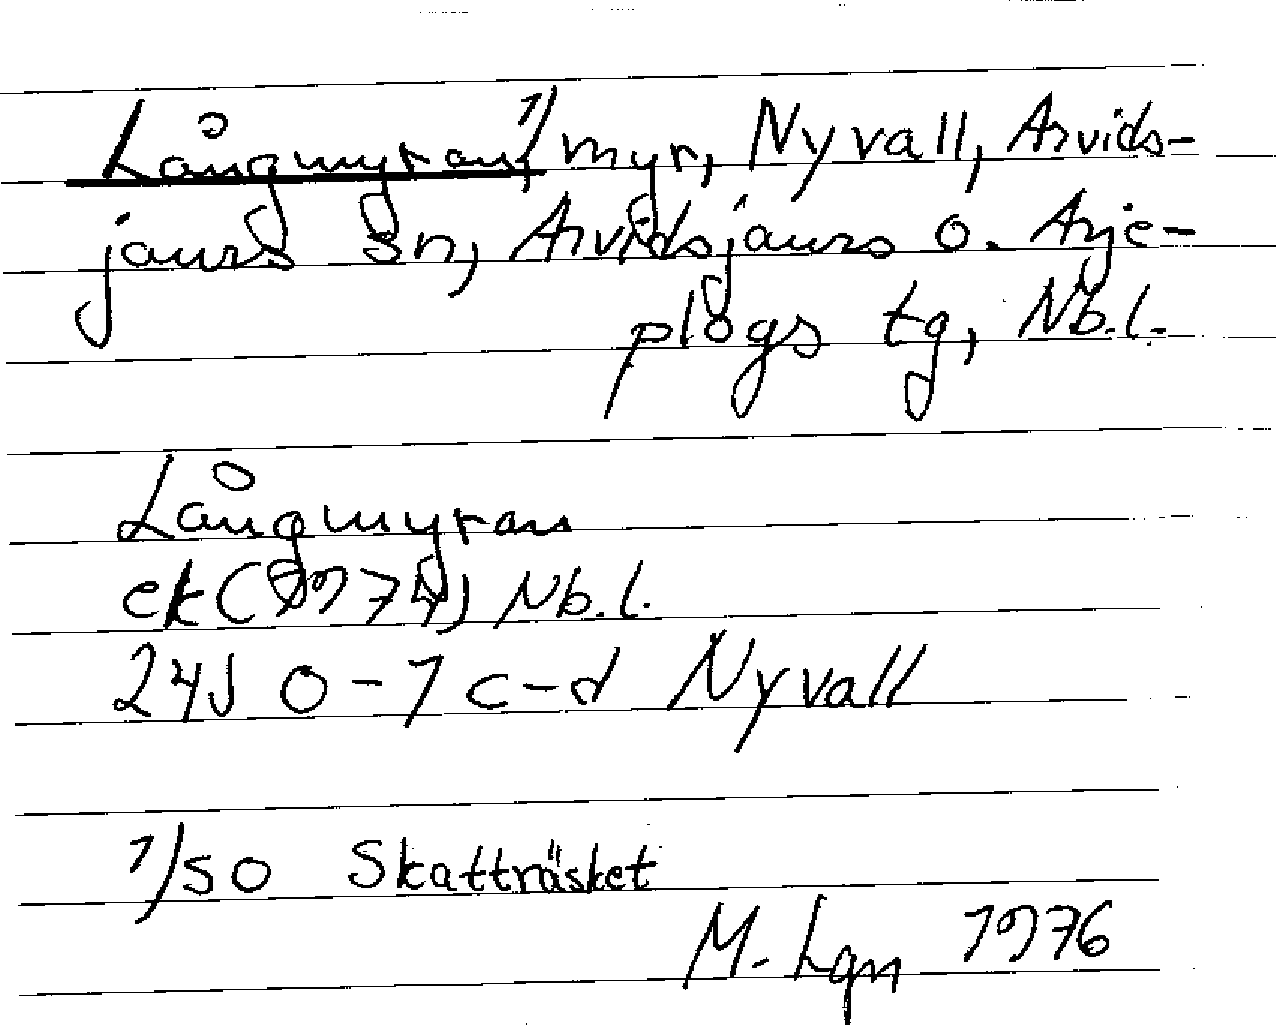 Långmyran,¹⁾ myr, Nyvall, Arvids-
jaurs sn, Arvidsjaurs o. Arje-
plogs tg, Nb.l.
Långmyran
ek (1974) Nb.l.
24J 0-1 c-d Nyvall
¹⁾ SO Skatträsket
M. Lgn 1976